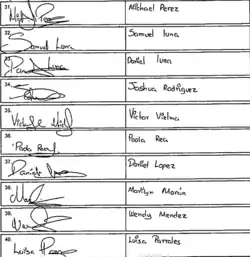 31.
Michael Perez
32.
Samuel Luna
Samuel luna
33.
Daniel luna
34.
Joshua Rodriguez
35.
Victor Vielma
36.
Paola Rea
Paola Rea
37.
Daniel Lopez
38.
Marilyn Morán
39.
Wendy Mendez
40.
Luisa
Luisa Parrales